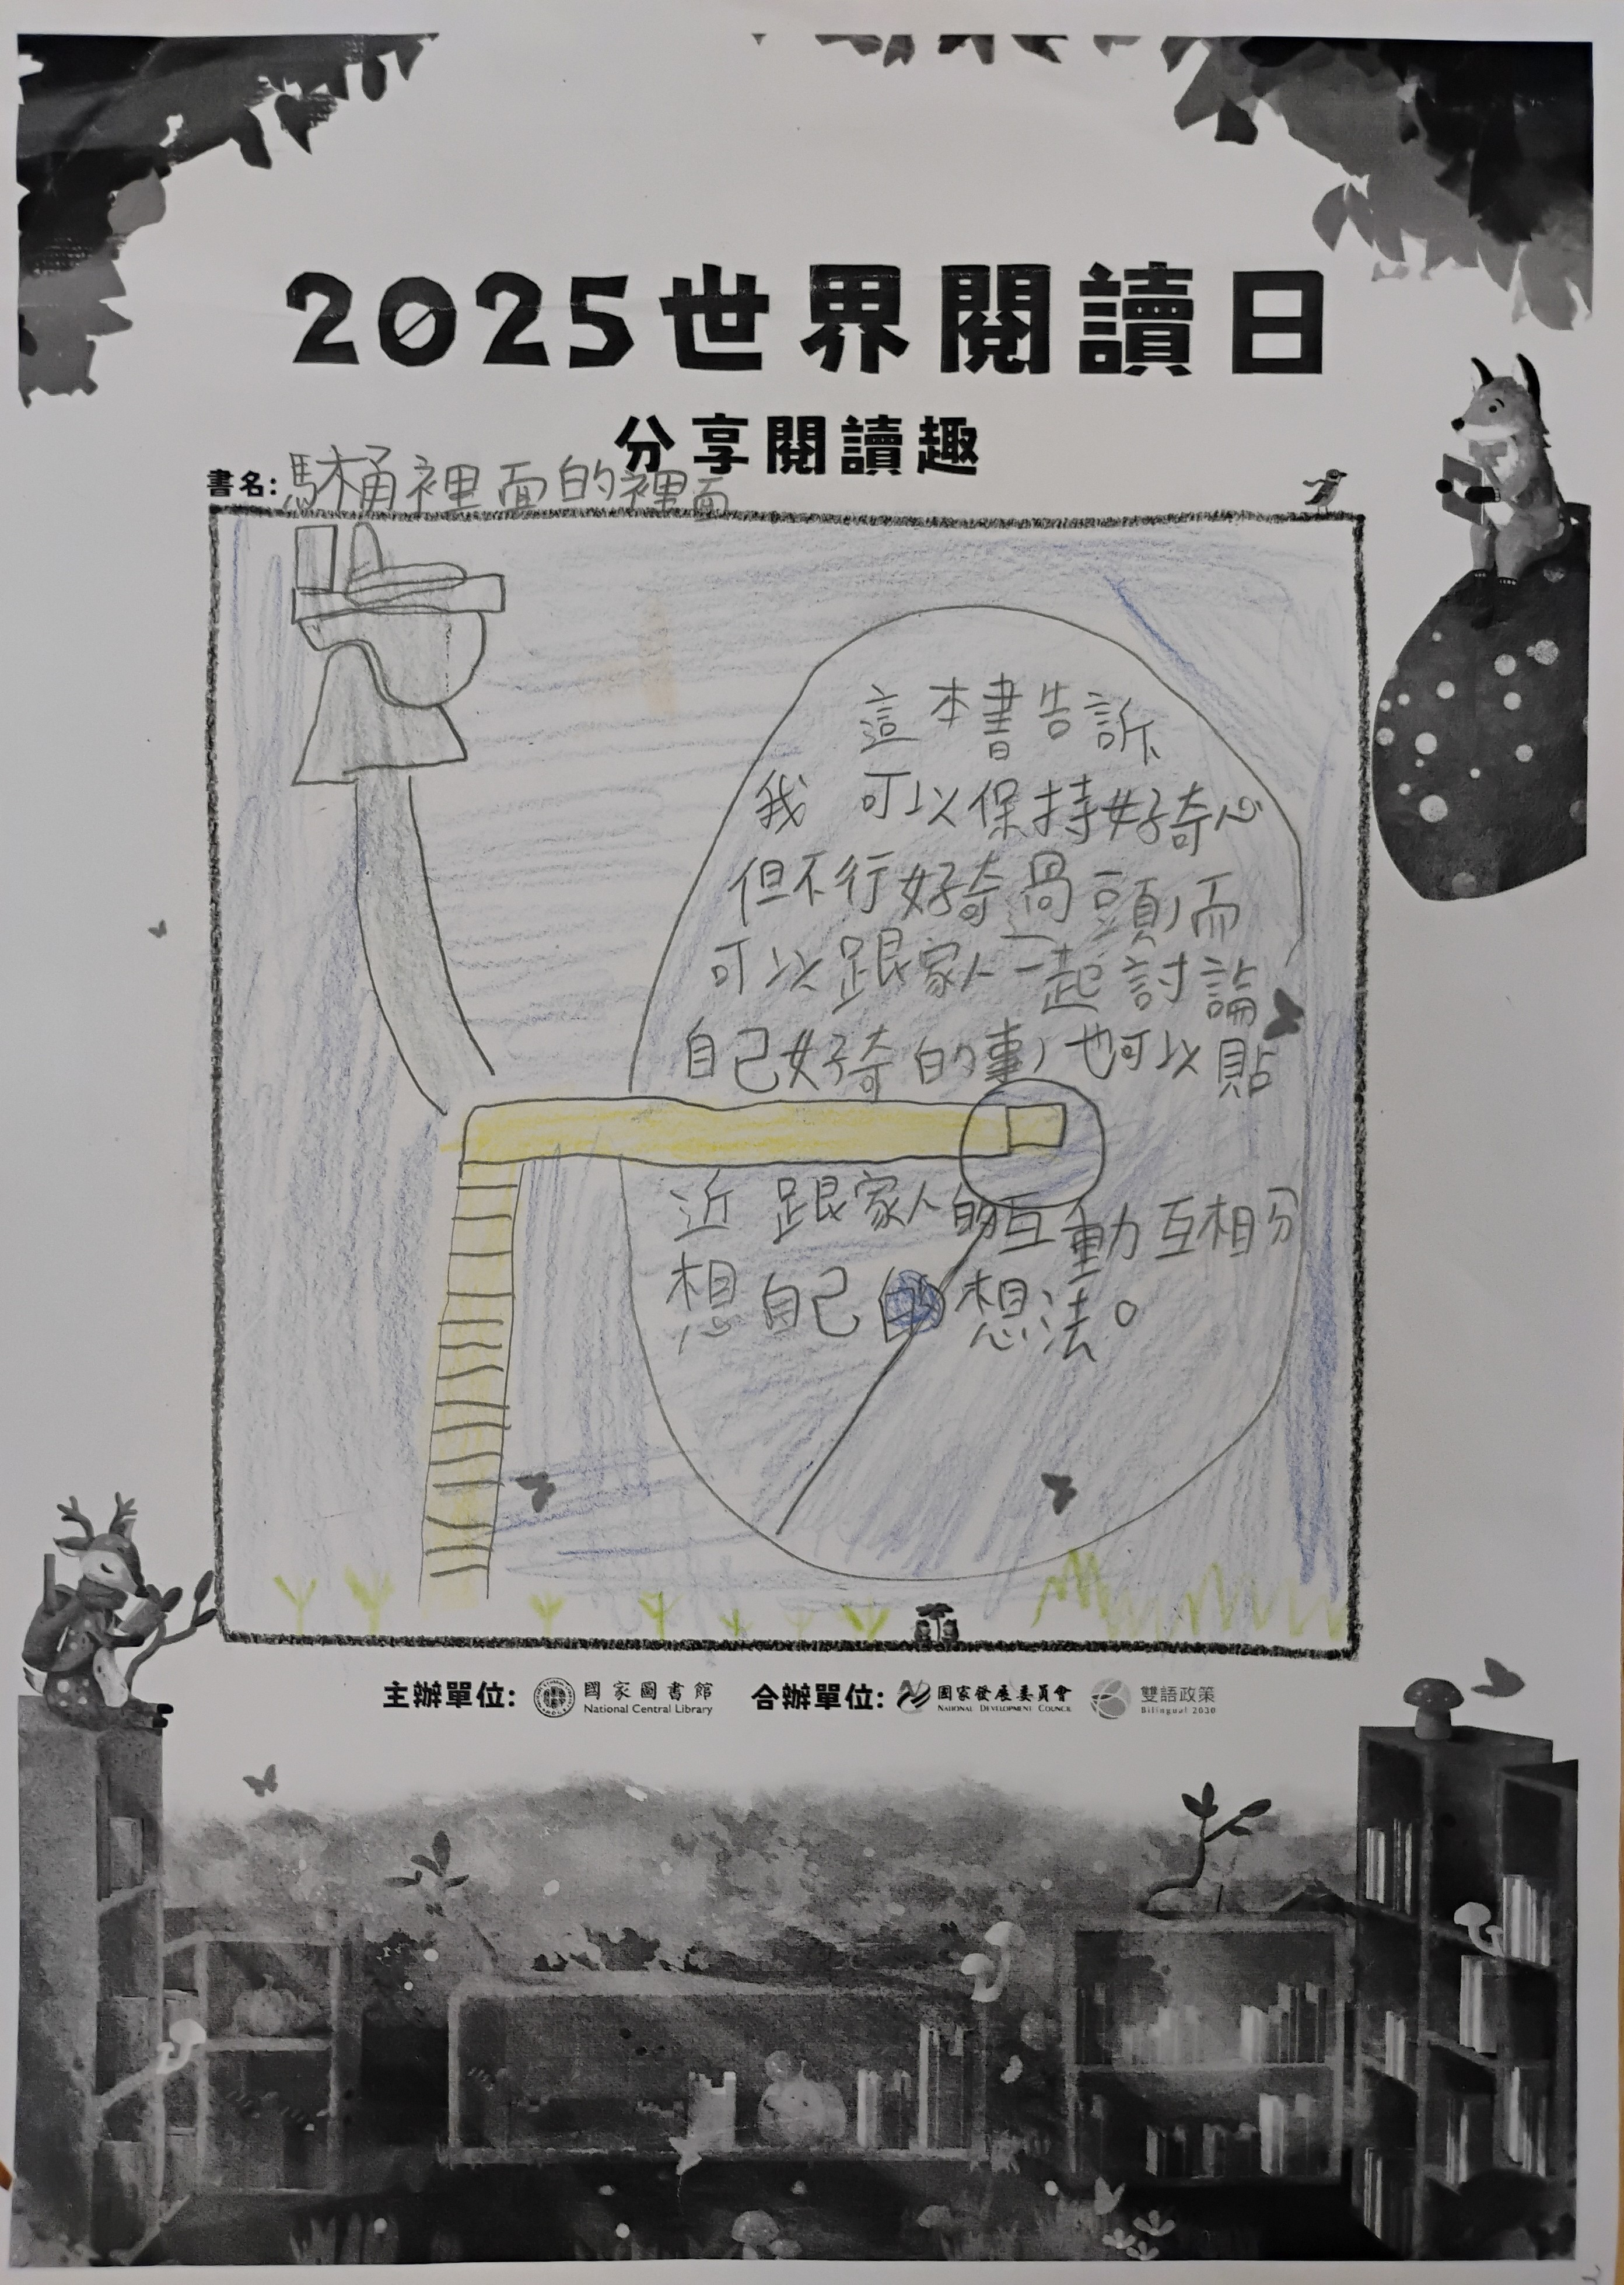 2025世界閱讀日
分享閱讀趣
書名:馬桶裡面的裡面
這本書告訴
我 可以保持好奇心
但不行好奇過頭,而
可以跟家人一起討論
自己好奇的事,也可以貼
近 跟家人的互動 互相分
想 自己的想法。
主辦單位: 國家圖書館 National Central Library 合辦單位: 國家發展委員會 NATIONAL DEVELOPMENT COUNCIL 雙語政策 Bilingual 2030